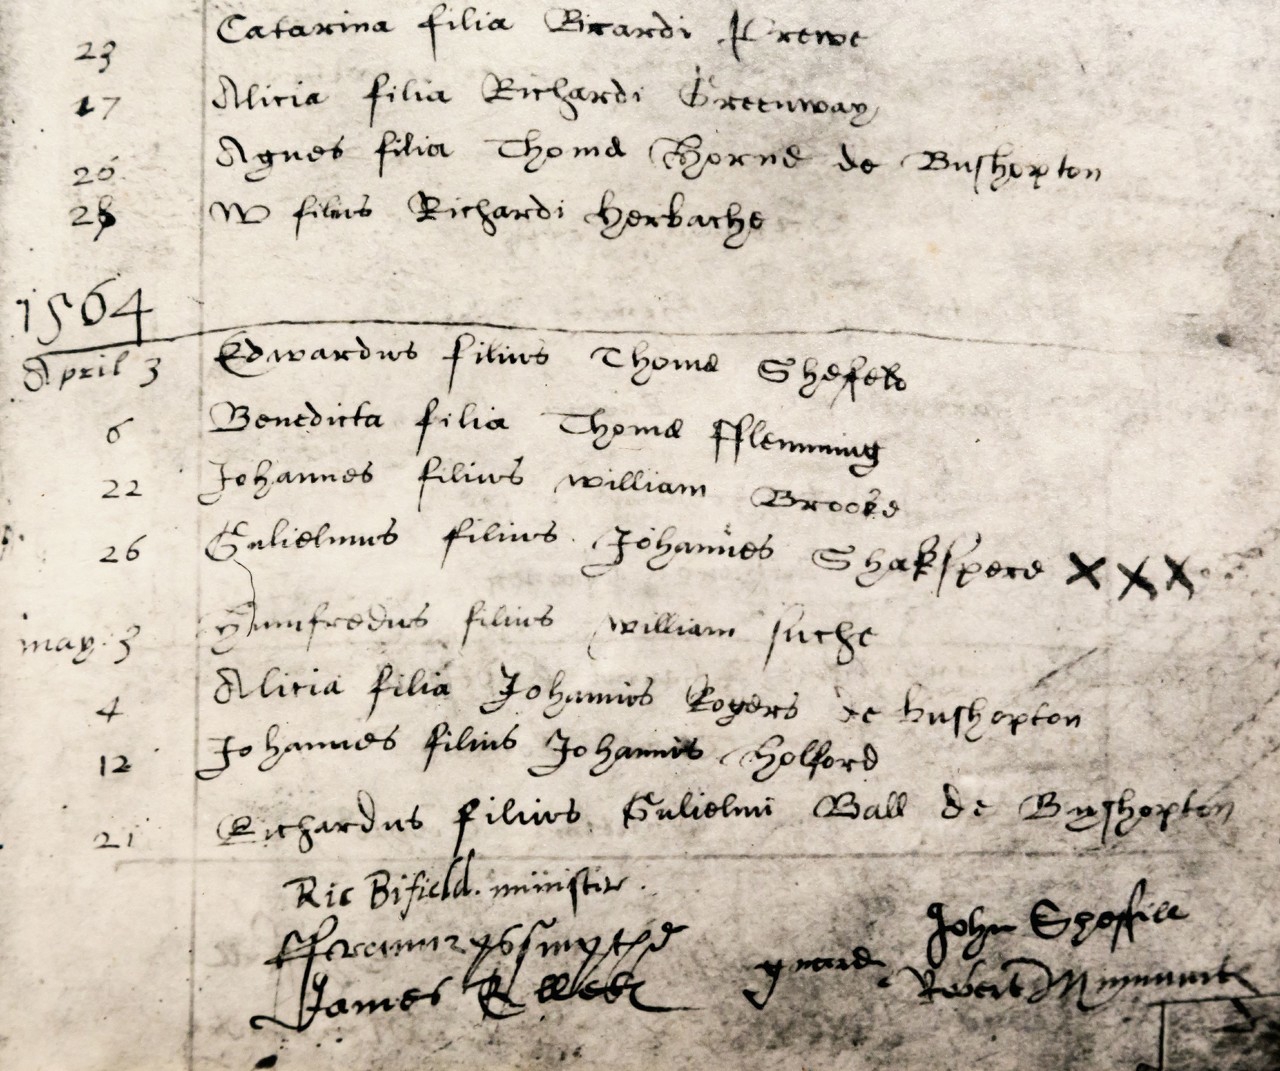 23 Catarina filia Ricardi Prewe
17 Alicia filia Richardi Greenway
20 Agnes filia Thomæ Horne de Bushopton
28 W filius Richardi Herbache
1564
April 3 Edwardus filius Thomæ Shefeld
6 Benedicta filia Thomæ fflemming
22 Johannes filius william Brooke
26 Gulielmus filius Johannes Shakspere XXX
may 3 Humfredus filius william suche
4 Alicia filia Johannis Rogers de bushopton
12 Johannes filius Johannis Holford
21 Richardus filius Gulielmi Ball de Bushopton
Ric Bifield. minister.
James John
Robert